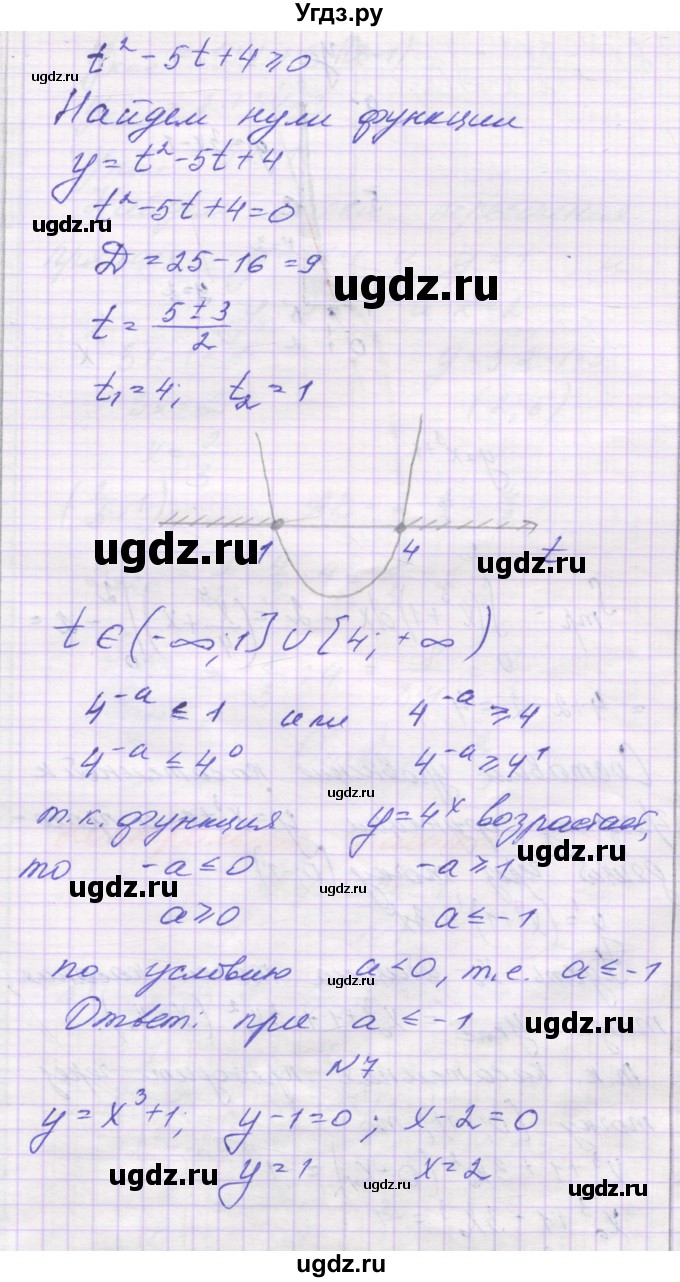 Угдз.ру
t² - 5t + 4 ≥ 0
ugdz.ru
Найдем нули функции
y = t² - 5t + 4
t² - 5t + 4 = 0
ugdz.ru
Д = 25 - 16 = 9
ugdz.ru
t = (5 ± 3)/2
t₁ = 4; t₂ = 1
ugdz.ru 1 4 ugdz.ru t
t ∈ (-∞; 1] ∪ [4; +∞)
4^-a ≤ 1 или 4^-a ≥ 4
4^-a ≤ 4^0 4^-a ≥ 4^1
ugdz.ru
т.к. функция y = 4^x возрастает,
ugdz.ru
то -a ≤ 0 -a ≥ 1
ugdz.ru ugdz.ru
a ≥ 0 a ≤ -1
по условию a < 0, т.е. a ≤ -1
ugdz.ru
Ответ: при a ≤ -1
ugdz.ru
N7
y = x³ + 1; y - 1 = 0; x - 2 = 0
y = 1 x = 2
ugdz.ru ugdz.ru ugdz.ru
ugdz.ru